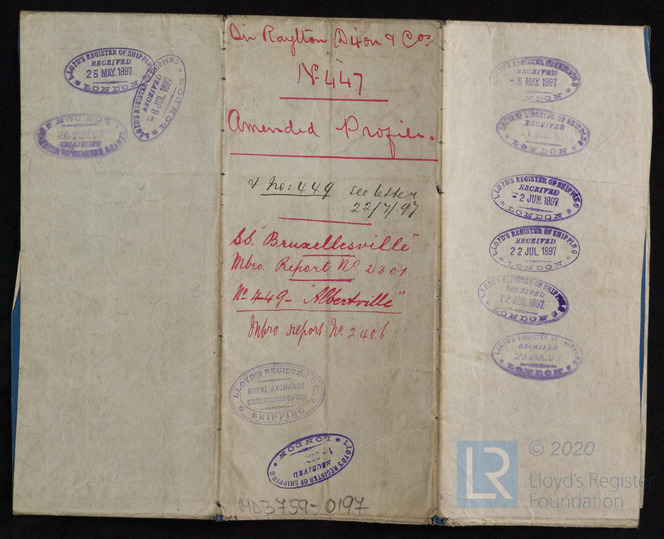 LLOYD'S REGISTER OF SHIPPING
RECEIVED
25 MAY. 1897
LONDON
LLOYD'S REGISTER OF SHIPPING
RECEIVED
8 JUL. 1897
LONDON
LONDON
RECEIVED
LLOYD'S REGISTER OF SHIPPING
Sir Raylton Dixon & Co.
No 447
Amended Profile.
& No: 449 see letter
22/7/97
S.S. "Bruxellesville"
Mbro. Report No 2301
No 449 - "Albertville"
Mbro report No 2406
LLOYD'S REGISTER OF
ROYAL EXCHANGE
SHIPPING
LLOYD'S REGISTER OF SHIPPING
RECEIVED
LONDON
MDB3759-0197
RECEIVED
MAY. 1897
LONDON
RECEIVED
LONDON
LLOYD'S REGISTER OF SHIPPING
RECEIVED
-2 JUN. 1897
LONDON
LLOYD'S REGISTER OF SHIPPING
RECEIVED
22 JUL. 1897
LONDON
LLOYD'S REGISTER OF SHIPPING
RECEIVED
12 AUG. 1897
LONDON
RECEIVED
LONDON
LR
© 2020
Lloyd's Register
Foundation